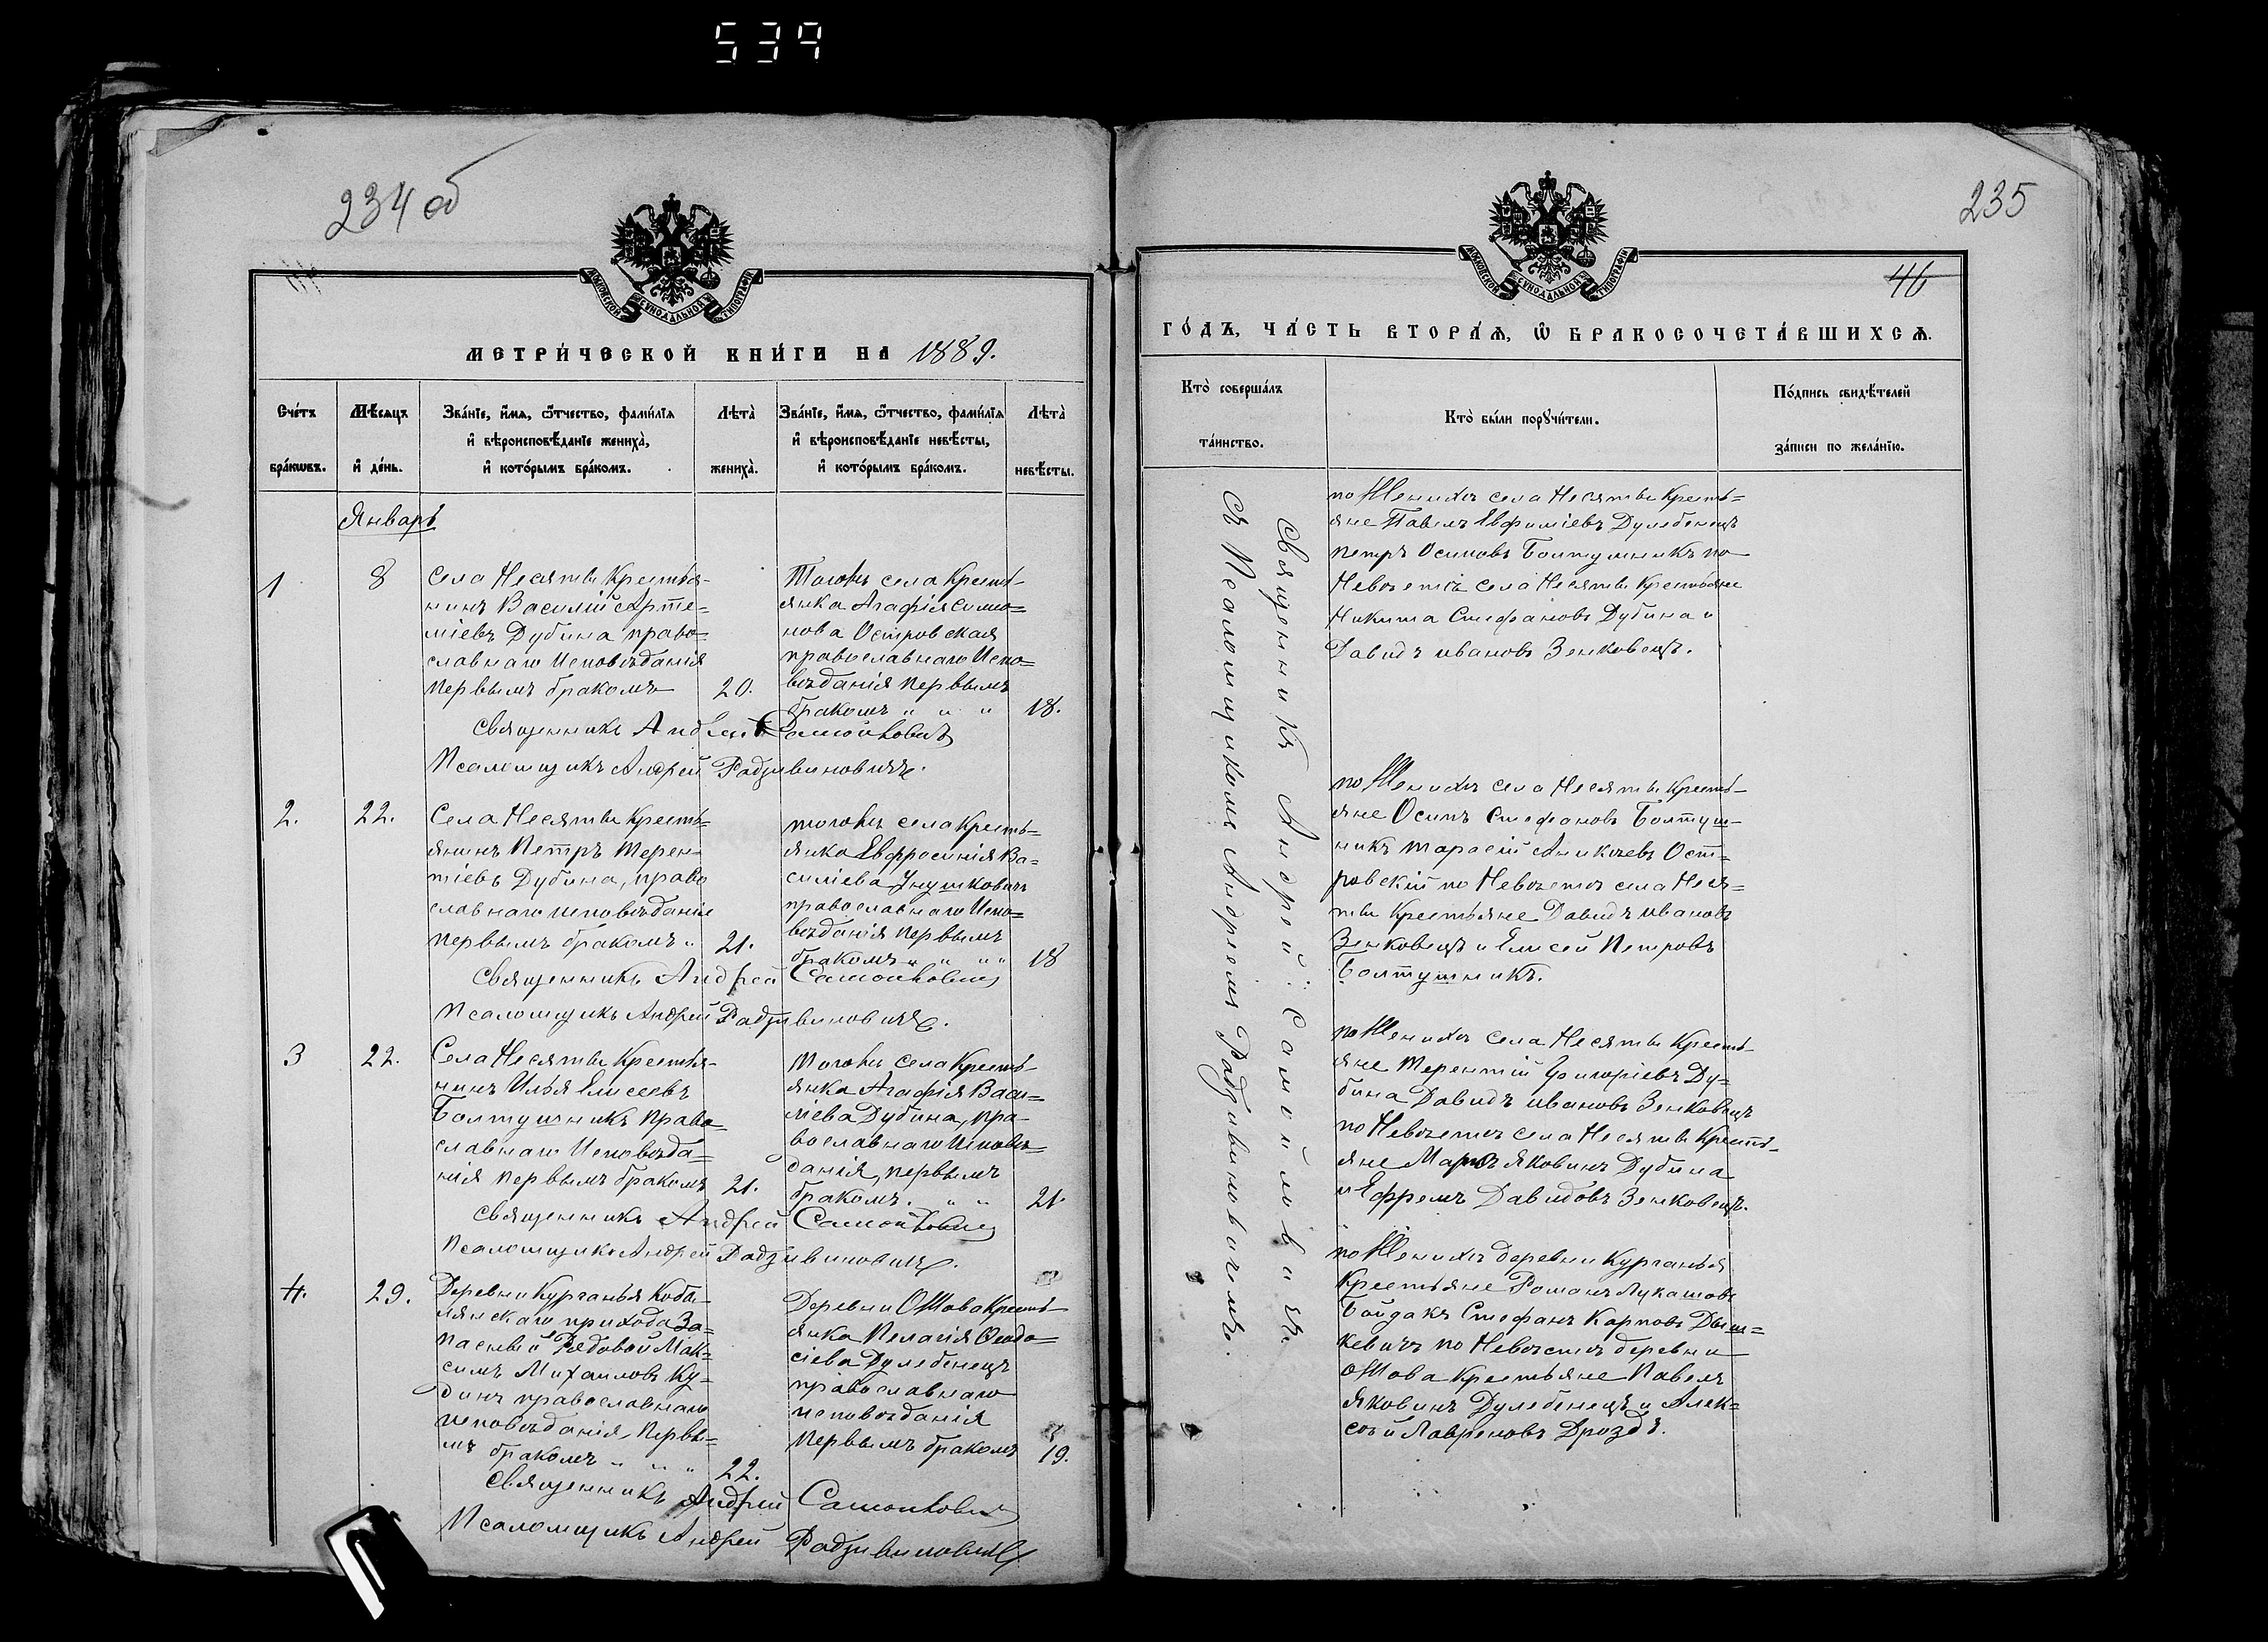 539
234 об
МОСКОВСКОЙ СѴНОДАЛЬНОЙ ТИПОГРАФІИ
МЕТРИ́ЧЕСКОЙ КНИ́ГИ НА 1889.
Сче́тъ бра́кѡвъ.
Мѣ́сяцъ и҆ де́нь.
Зва́нїе, и҆́мѧ, ѻ҆́тчество, фами́лїѧ
и҆ вѣроисповѣ́данїе женихà,
и҆ кото́рымъ бра́комъ.
Лѣ́тà женихà.
Зва́нїе, и҆́мѧ, ѻ҆́тчество, фами́лїѧ
и҆ вѣроисповѣ́данїе невѣ́сты,
и҆ кото́рымъ бра́комъ.
Лѣ́тà невѣ́сты.
Январь
1
8
Села Несятты Крестья-
нинъ Василій Арте=
міевъ Дубина право=
славнаго исповѣданія
первымъ бракомъ
20.
Тогожъ села Кресть-
янка Агафія Симо=
нова Островская
православнаго Испо=
вѣданія первымъ
бракомъ " " "
18.
Священникъ Андрей Самойловичъ
Псаломщикъ Андрей Радзивиновичъ.
2.
22.
Села Несятты Кресть=
янинъ Петръ Терен=
тіевъ Дубина, право
славнаго исповѣданія
первымъ бракомъ "
21.
тогожъ села Кресть=
янка Евфросинія Ва=
силіева
православнаго Испо=
вѣданія первымъ
бракомъ " " " "
18
Священникъ Андрей Самойловичъ
Псаломщикъ Андрей Радзивиновичъ.
3
22.
Села Несятты Крестья-
нинъ Илья Елисеевъ
Болтушникъ Право
славнаго Исповѣда=
нія первымъ бракомъ
21.
Тогожъ села Кресть-
янка Агафія Васи=
ліева Дубина, пра-
вославнаго исповѣ=
данія, первымъ
бракомъ. " "
21.
Священникъ Андрей Самойловичъ
Псаломщикъ Андрей Радзивиновичъ.
4.
29.
Деревни Курганья Коба-
лянскаго прихода За=
пасный Рядовой Мак=
симъ Михаиловъ Ку=
динъ православнаго
исповѣданія, Первы=
мъ бракомъ " " "
22.
Деревни Ожова Кресть-
янка Пелагія Ѳеодо=
сіева Дулебенецъ
православнаго
исповѣданія
Первымъ бракомъ
19.
Священникъ Андрей Самойловичъ
Псаломщикъ Андрей Радзивиновичъ
235
МОСКОВСКОЙ СѴНОДАЛЬНОЙ ТИПОГРАФІИ
46
ГО́ДЪ, ЧА́СТЬ ВТОРА́Ѧ, Ѽ БРАКОСОЧЕТА́ВШИХСѦ.
Кто̀ соверша́лъ
та́инство.
Кто̀ бы́ли порꙋчи́тели.
По́дпись свидѣ́телей
за́писи по жела́нїю.
Священникъ Андрей Самойловичъ
съ Псаломщикомъ Андреемъ Радзивиновичемъ.
по Женихѣ села Несятты Кресть=
яне Павелъ Евфиміевъ Дулебенецъ
Петръ Осиповъ Болтушникъ по
Невѣстѣ села Несятты Крестьяне
Никита Стефановъ Дубина и
Давидъ ивановъ Зенковецъ.
по Женихѣ села Несятты Кресть-
яне Осипъ Стефановъ Болтуш-
никъ Тарасій Аникѣевъ Ост=
ровскій по Невѣстѣ села Неся=
тты Крестьяне Давидъ ивановъ
Зенковецъ и Елисей Петровъ
Болтушникъ.
по Женихѣ села Несятты Кресть-
яне Терентій Григоріевъ Ду=
бина Давидъ ивановъ Зенковецъ
по Невѣстѣ села Несятты Кресть-
яне Марко Яковинъ Дубина
и Ефремъ Давидовъ Зенковецъ.
по Женихѣ деревни Курганья
Крестьяне Романъ Лукашовъ
Байдакъ Стефанъ Карповъ Дыш=
кевичъ по Невѣстѣ деревни
Ожова Крестьяне Павелъ
Яковинъ Дулебенецъ и Алек=
сѣй Лавреновъ Дроздъ.